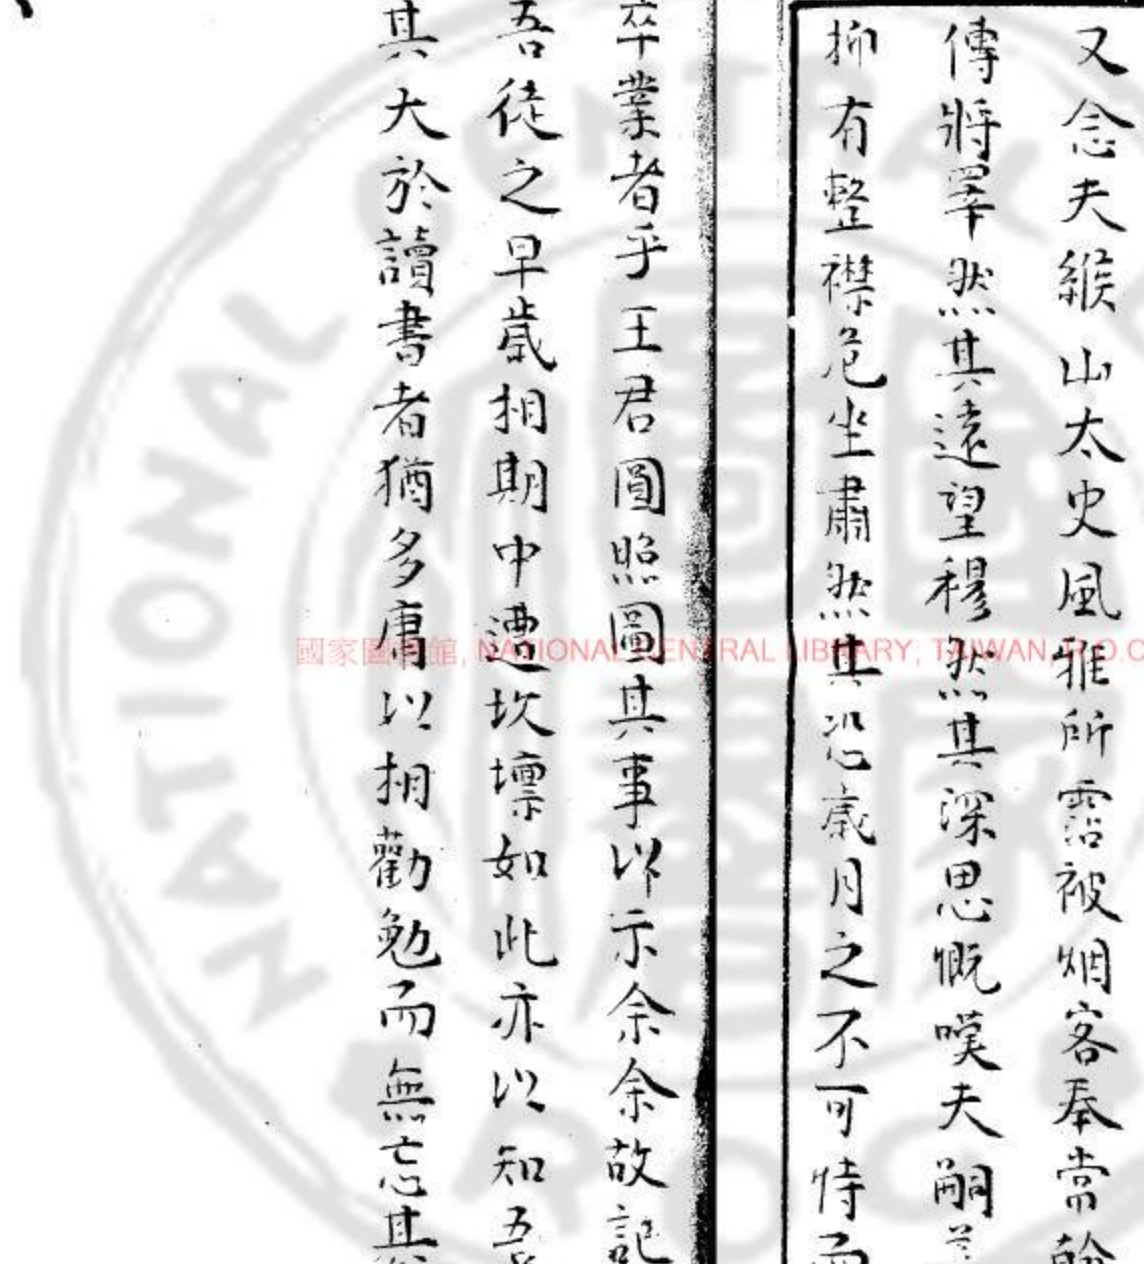 又念夫緱山太史風雅所霑被烟客奉常翰
傳將睪然其遠望穆然其深思慨嘆夫嗣
抑有整襟危坐肅然其恐歲月之不可恃而
卒業者乎王君圓照圖其事以示余余故記
吾徒之早歲相期中遭坎壈如此亦以知吾
其大於讀書者猶多庸以相勸勉而無忘其
國家圖書館, NATIONAL CENTRAL LIBRARY, TAIWAN, R.O.C
NATIONAL CENTRAL